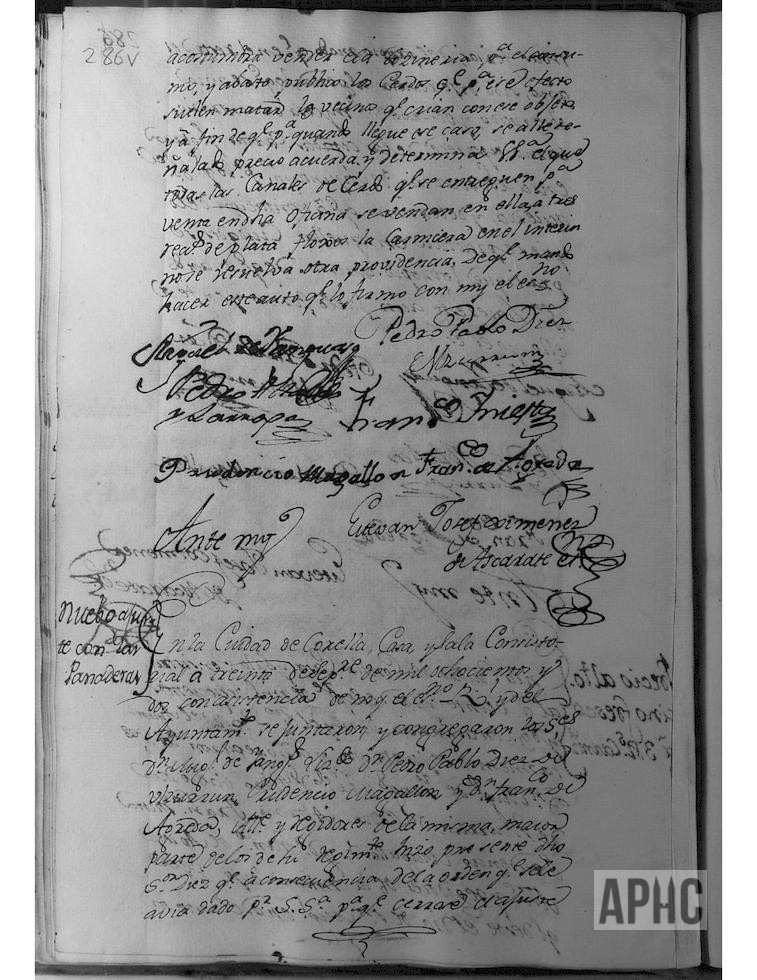 286
286V
acostumbra vender en la tocineria, pa. el consu-
mo, y abasto publico los Cerdos q.e pa. ese efecto
suelen matar los vecinos q.e crian con ese objeto
y a fin de q.e pa. quando llegue ese caso, se
ñalado precio acuerda, y determina S.S.a el que
todas las Canales de Cerdo q.e se entreguen pa.
venta en dha oficina se vendan en ella, a tres
rea.s de plata, flojos la Carnicera en el interin
no se resuelva otra providencia. De q.e mando
hacer este auto q.e lo firmo con my el es.no
Pedro Pablo Diez
Rafael de
Ulzurrun
Pedro
y Larraga
Fran.co Iniesta
Prudencio Magallon
Fran.co de Agreda
Ante my
Estevan Josef Ximenez
de Ascarate es.no
Nuebo ajus
te con las
Panaderas
En la Ciudad de Corella, Casa, y sala Consisto-
rial a treinta de sep.re de mil ochocientos y
dos con asistencia de my el es.no R.l y del
Ayuntam.to se juntaron y congregaron los S.res
D.n de Liz.do D.n Pedro Pablo Diez de
Ulzurrun, Prudencio Magallon y D.n Fran.co de
Agreda, Alc.e y regidores de la misma, maior
parte de los de su regim.to hizo presente dho
S.or Diez q.e a consecuencia de la orden q.e se le
avia dado p.r S.S.a pa. q.e cerrase el ajuste
APHC